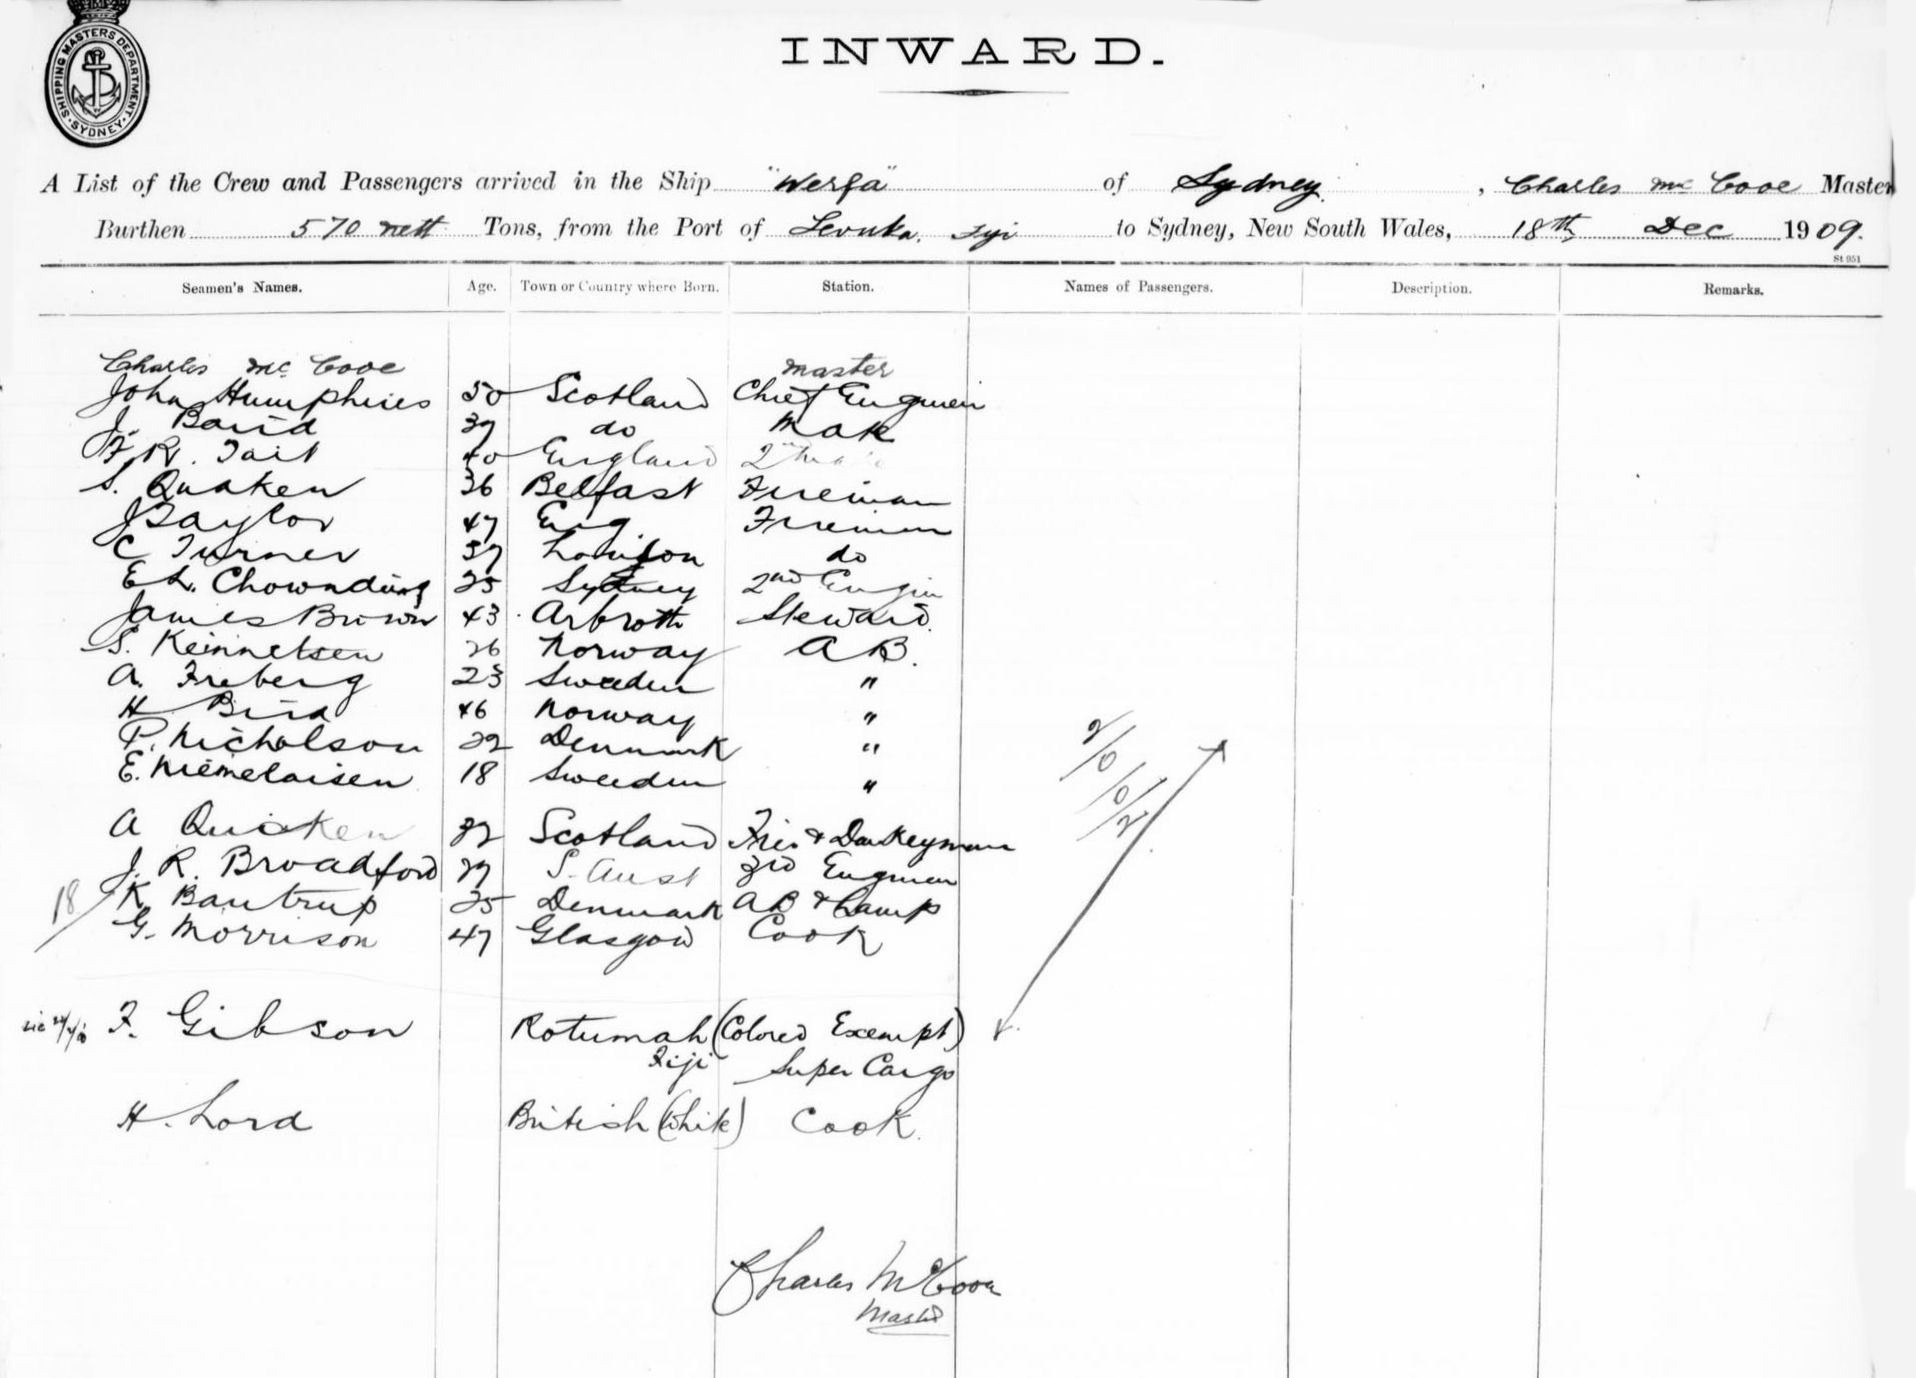 SHIPPING MASTERS DEPARTMENT. SYDNEY.
INWARD.
A List of the Crew and Passengers arrived in the Ship "Werfa" of Sydney, Charles Mc Cooe Master
Burthen 570 nett Tons, from the Port of Levuka. Fiji to Sydney, New South Wales, 18th Dec 1909.
St 951
Seamen's Names. Age. Town or Country where Born. Station. Names of Passengers. Description. Remarks.
Charles Mc Cooe Master
John Humphries 50 Scotland Chief Engineer
J. Baird 39 do Mate
F. R. Tait 40 England 2nd Mate
S. Quaken 36 Belfast Fireman
J Taylor 47 Eng Fireman
C Turner 37 London do
E L. 25 Sydney 2nd Engin
James Brown 43 Arbroth Steward
S. Keinnetsen 26 Norway A B.
A. Freberg 23 Sweden "
H Bird 46 Norway "
P. Nicholson 22 Denmark "
E. Niemelaisen 18 Sweden "
A Quicken 32 Scotland Fire & Donkeyman
J. R. Broadford 29 S. Aust 3rd Engineer
18 K Bantrup 25 Denmark AB & Lamp
G. Morrison 47 Glasgow Cook
2/0/0/2
F. Gibson Rotumah (Colored Exempt)
Fiji Super Cargo
H. Lord British (White) Cook.
Charles McCooe
Master